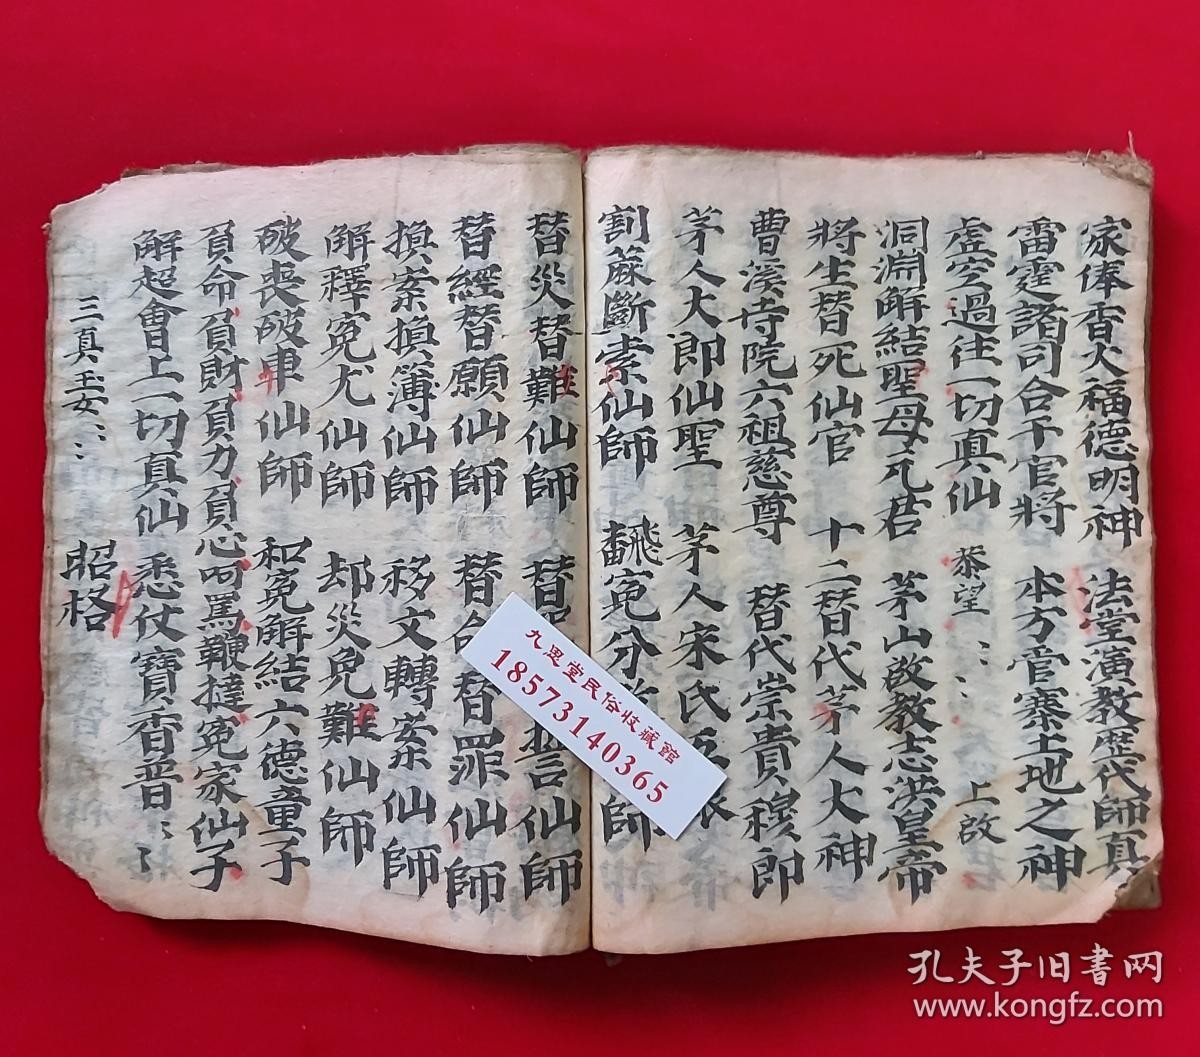 家俸香火福德明神 法堂演教歷代師真
雷霆諸司合干官將 本方管寨土地之神
虛空過往一切真仙 恭望：： 上啟
洞淵解結聖母元君 茅山啟教志洪皇帝
將生替死仙官 十二替代茅人大神
曹溪寺院六祖慈尊 替代崇貴穆郎
茅人大郎仙聖 茅人宋氏
割蔴斷索仙師 飜冤分 師
替災替難仙師 替 仙師
替經替願仙師 替 替罪仙師
損案損簿仙師 移文轉案仙師
解釋冤尤仙師 却災免難仙師
破喪破車仙師 和冤解結六德童子
負命負財負力負心呵罵鞭撻冤家仙子
解超會上一切真仙 悉仗寶香普：：
三真玉女：： 昭格
九思堂民俗收藏館
18573140365
孔夫子旧书网
www.kongfz.com